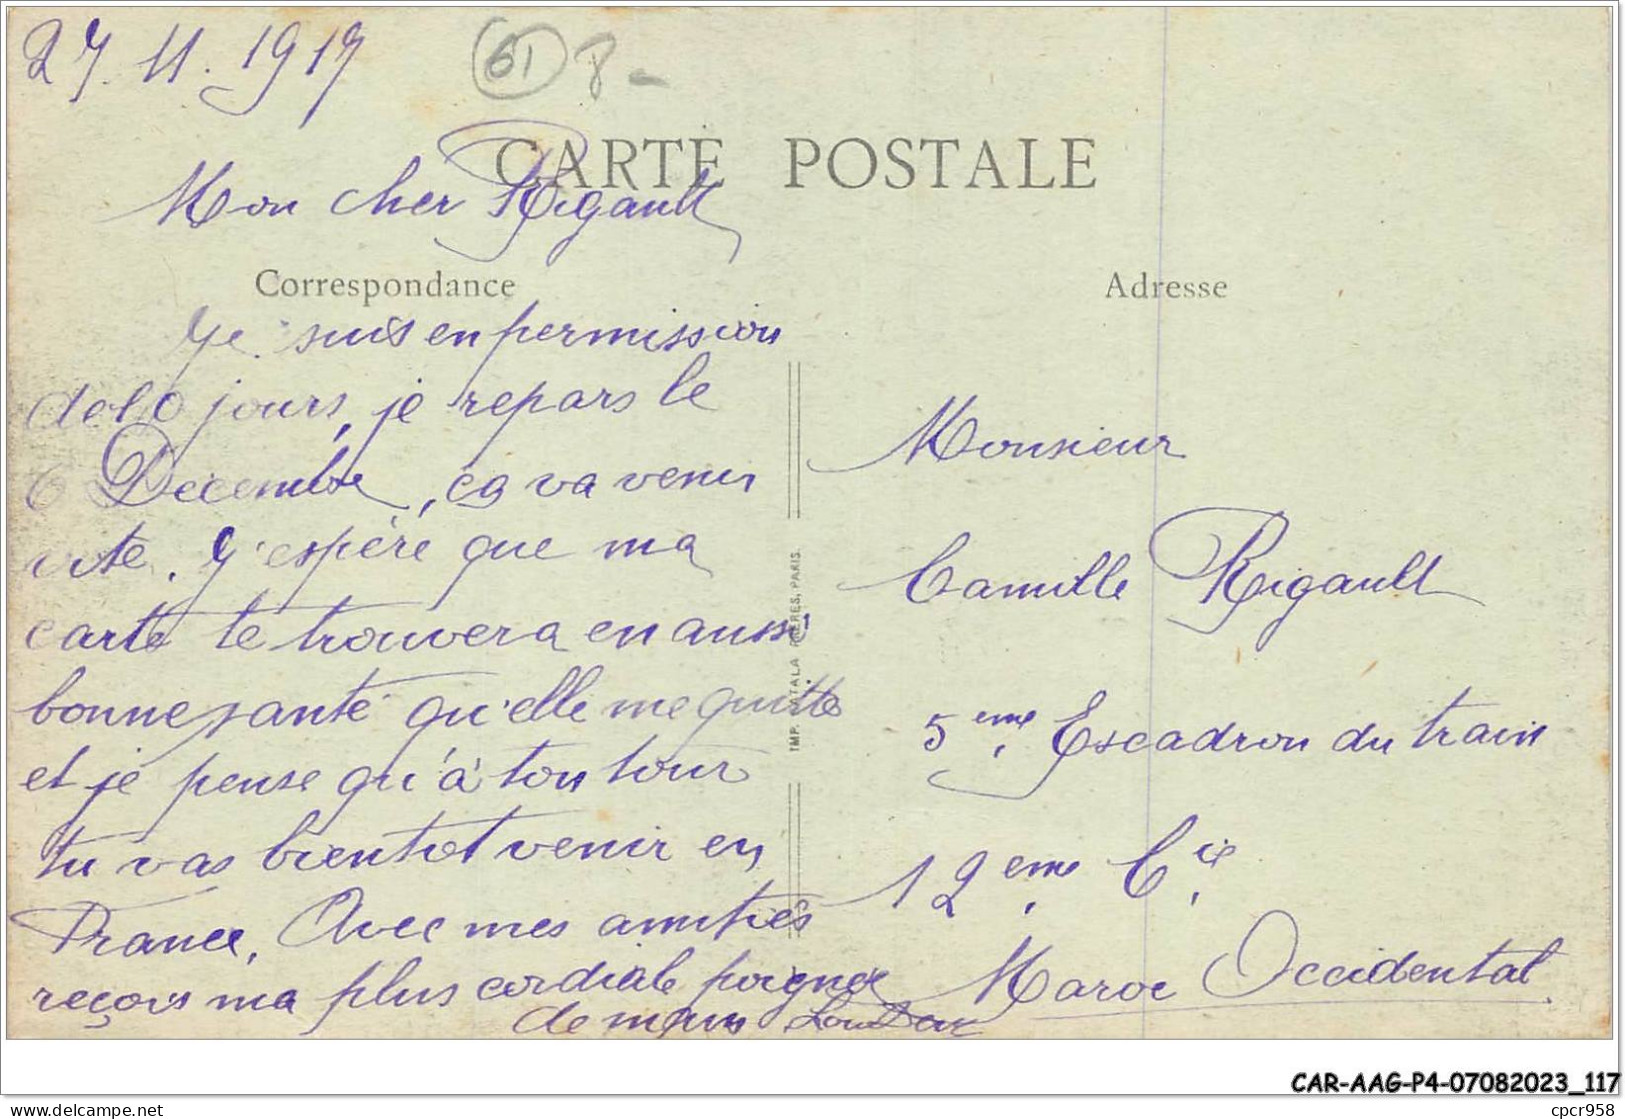 27. 11. 1917
61 8-
CARTE POSTALE
Mon cher Rigault
Correspondance
Je suis en permission
de 10 jours, je repars le
6 Décembre, ça va venir
vite. J'espère que ma
carte te trouvera en aussi
bonne santé qu'elle me quitte
et je pense qu'à ton tour
tu vas bientot venir en
France. Avec mes amitiés
reçois ma plus cordiale poignée
de mains
IMP. CATALA FRERES, PARIS.
Adresse
Monsieur
Camille Rigault
5eme Escadron du train
12eme Cie
Maroc Occidental.
CAR-AAG-P4-07082023_117
www.delcampe.net
cpcr958